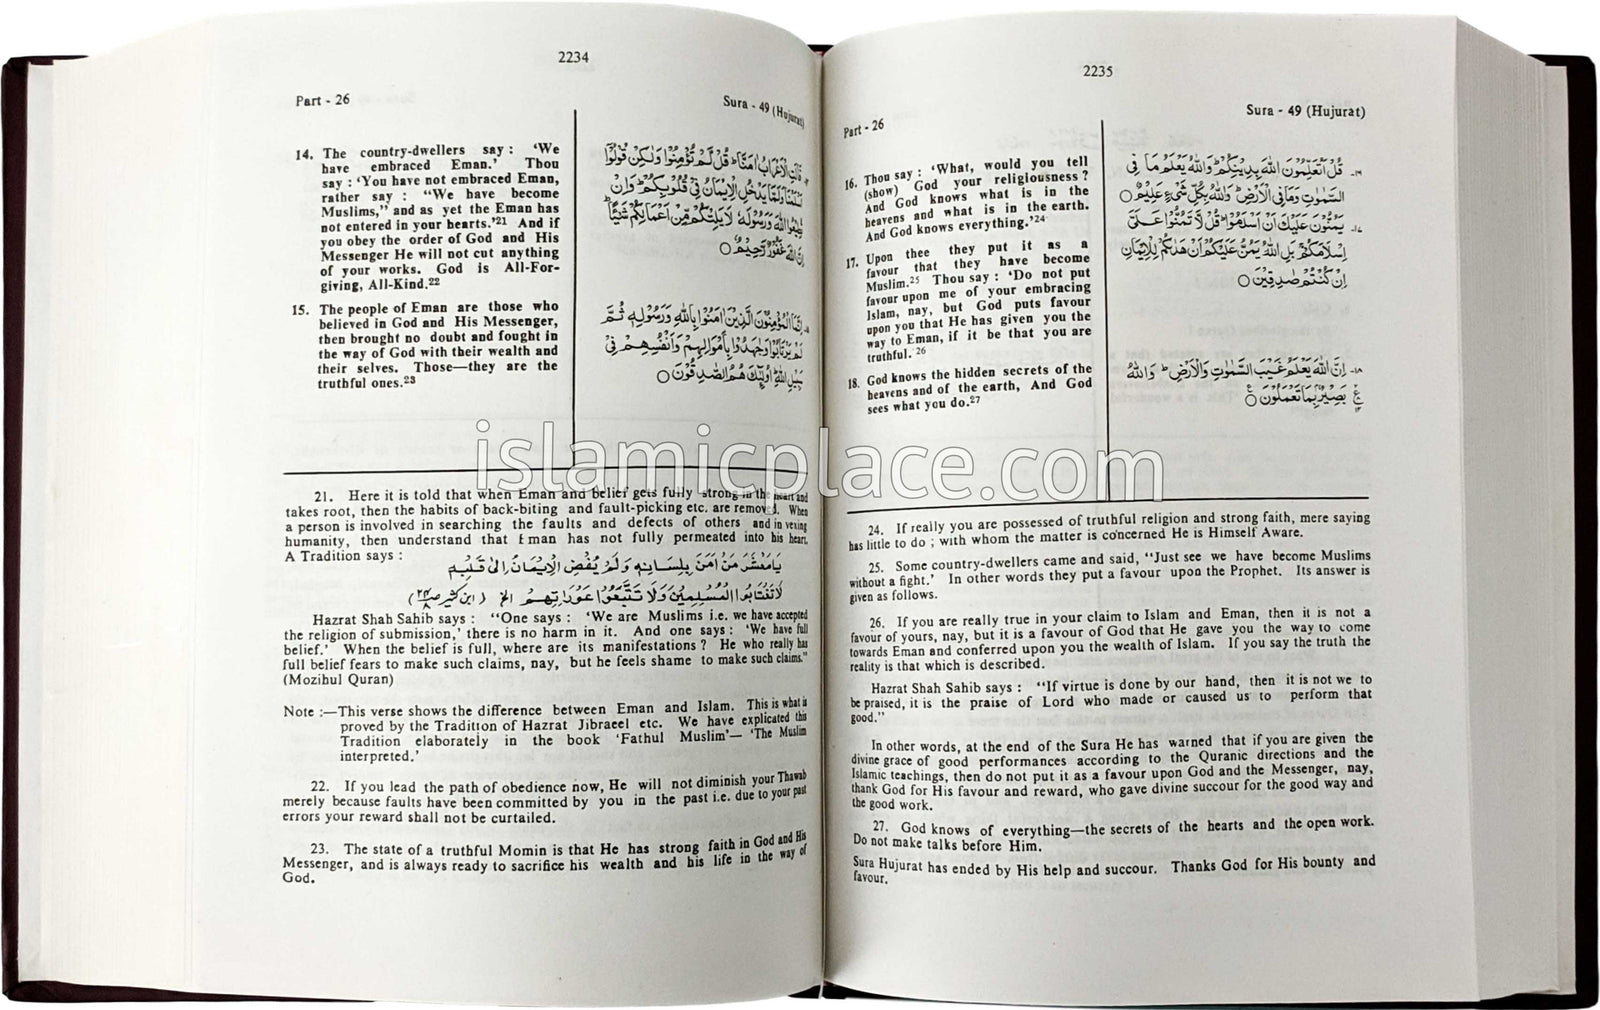 2234
Part - 26
Sura - 49 (Hujurat)
14. The country-dwellers say : ‘We
have embraced Eman.’ Thou
say : ‘You have not embraced Eman,
rather say : “We have become
Muslims,” and as yet the Eman has
not entered in your hearts.’21 And if
you obey the order of God and His
Messenger He will not cut anything
of your works. God is All-For-
giving, All-Kind.22
15. The people of Eman are those who
believed in God and His Messenger,
then brought no doubt and fought in
the way of God with their wealth and
their selves. Those—they are the
truthful ones.23
قَالَتِ الْاَعْرَابُ اٰمَنَّا ؕ قُلْ لَّمْ تُؤْمِنُوْا وَلٰكِنْ قُوْلُوْۤا
اَسْلَمْنَا وَلَمَّا يَدْخُلِ الْاِيْمَانُ فِيْ قُلُوْبِكُمْ ؕ وَاِنْ
تُطِيْعُوا اللّٰهَ وَرَسُوْلَهٗ لَا يَلِتْكُمْ مِّنْ اَعْمَالِكُمْ شَيْـًٔا ؕ
اِنَّ اللّٰهَ غَفُوْرٌ رَّحِيْمٌ ○
اِنَّمَا الْمُؤْمِنُوْنَ الَّذِيْنَ اٰمَنُوْا بِاللّٰهِ وَرَسُوْلِهٖ ثُمَّ
لَمْ يَرْتَابُوْا وَجٰهَدُوْا بِاَمْوَالِهِمْ وَاَنْفُسِهِمْ فِيْ
سَبِيْلِ اللّٰهِ ؕ اُولٰٓئِكَ هُمُ الصّٰدِقُوْنَ ○
21. Here it is told that when Eman and belief gets fully strong in the heart and
takes root, then the habits of back-biting and fault-picking etc. are removed. When
a person is involved in searching the faults and defects of others and in vexing
humanity, then understand that Eman has not fully permeated into his heart.
A Tradition says :
يَامَعْشَرَ مَنْ اٰمَنَ بِلِسَانِهٖ وَلَمْ يُفْضِ الْاِيْمَانُ اِلٰى قَلْبِهٖ
لَاتَغْتَابُوا الْمُسْلِمِيْنَ وَلَا تَتَّبِعُوْا عَوْرَاتِهِمْ الخ (ابن كثير
Hazrat Shah Sahib says : “One says : ‘We are Muslims i.e. we have accepted
the religion of submission,’ there is no harm in it. And one says : ‘We have full
belief.’ When the belief is full, where are its manifestations ? He who really has
full belief fears to make such claims, nay, but he feels shame to make such claims.”
(Mozihul Quran)
Note :—This verse shows the difference between Eman and Islam. This is what is
proved by the Tradition of Hazrat Jibraeel etc. We have explicated this
Tradition elaborately in the book ‘Fathul Muslim’— ‘The Muslim
interpreted.’
22. If you lead the path of obedience now, He will not diminish your Thawab
merely because faults have been committed by you in the past i.e. due to your past
errors your reward shall not be curtailed.
23. The state of a truthful Momin is that He has strong faith in God and His
Messenger, and is always ready to sacrifice his wealth and his life in the way of
God.
2235
Part - 26
Sura - 49 (Hujurat)
16. Thou say : ‘What, would you tell
(show) God your religiousness ?
And God knows what is in the
heavens and what is in the earth.
And God knows everything.’24
17. Upon thee they put it as a
favour that they have become
Muslim.25 Thou say : ‘Do not put
favour upon me of your embracing
Islam, nay, but God puts favour
upon you that He has given you the
way to Eman, if it be that you are
truthful. 26
18. God knows the hidden secrets of the
heavens and of the earth, And God
sees what you do.27
۱۶- قُلْ اَتُعَلِّمُوْنَ اللّٰهَ بِدِيْنِكُمْ ؕ وَاللّٰهُ يَعْلَمُ مَا فِي
السَّمٰوٰتِ وَمَا فِي الْاَرْضِ ؕ وَاللّٰهُ بِكُلِّ شَيْءٍ عَلِيْمٌ ○
۱۷- يَمُنُّوْنَ عَلَيْكَ اَنْ اَسْلَمُوْا ؕ قُلْ لَّا تَمُنُّوْا عَلَيَّ
اِسْلَامَكُمْ ۚ بَلِ اللّٰهُ يَمُنُّ عَلَيْكُمْ اَنْ هَدٰىكُمْ لِلْاِيْمَانِ
اِنْ كُنْتُمْ صٰدِقِيْنَ ○
۱۸- اِنَّ اللّٰهَ يَعْلَمُ غَيْبَ السَّمٰوٰتِ وَالْاَرْضِ ؕ وَاللّٰهُ
بَصِيْرٌۢ بِمَا تَعْمَلُوْنَ ○
24. If really you are possessed of truthful religion and strong faith, mere saying
has little to do ; with whom the matter is concerned He is Himself Aware.
25. Some country-dwellers came and said, “Just see we have become Muslims
without a fight.’ In other words they put a favour upon the Prophet. Its answer is
given as follows.
26. If you are really true in your claim to Islam and Eman, then it is not a
favour of yours, nay, but it is a favour of God that He gave you the way to come
towards Eman and conferred upon you the wealth of Islam. If you say the truth the
reality is that which is described.
Hazrat Shah Sahib says : “If virtue is done by our hand, then it is not we to
be praised, it is the praise of Lord who made or caused us to perform that
good.”
In other words, at the end of the Sura He has warned that if you are given the
divine grace of good performances according to the Quranic directions and the
Islamic teachings, then do not put it as a favour upon God and the Messenger, nay,
thank God for His favour and reward, who gave divine succour for the good way and
the good work.
27. God knows of everything—the secrets of the hearts and the open work.
Do not make talks before Him.
Sura Hujurat has ended by His help and succour. Thanks God for His bounty and
favour.
islamicplace.com